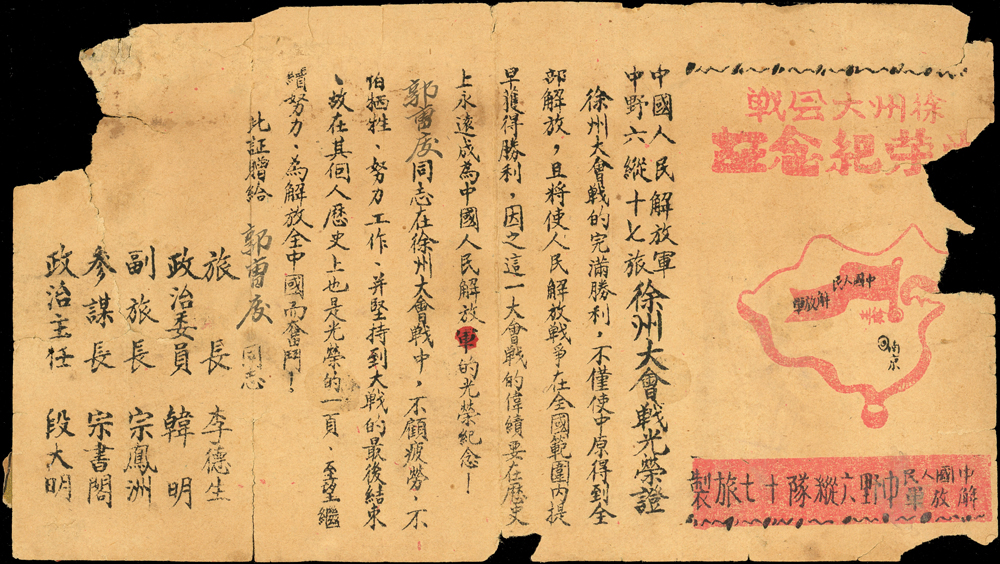 徐州大会戰
荣紀念証
中國人民
解放軍
南京
中國人民
解放軍
中野六縱隊十七旅製
中國人民解放軍
中野六縱十七旅徐州大會戰光榮證
徐州大會戰的完滿勝利，不僅使中原得到全
部解放，且將使人民解放戰爭在全國範圍内提
早獲得勝利，因之這一大會戰的偉績要在歷史
上永遠成為中國人民解放軍的光榮紀念！
郭曹同志在徐州大會戰中，不顧疲勞、不
怕牺牲、努力工作、并堅持到大戰的最後結束
、故在其個人歷史上也是光榮的一頁、至望繼
續努力、為解放全中國而奮鬥！
此証贈給 郭曹 同志
旅長 李德生
政治委員 韓明
副旅長 宗鳳洲
參謀長 宗書閣
政治主任 段大明